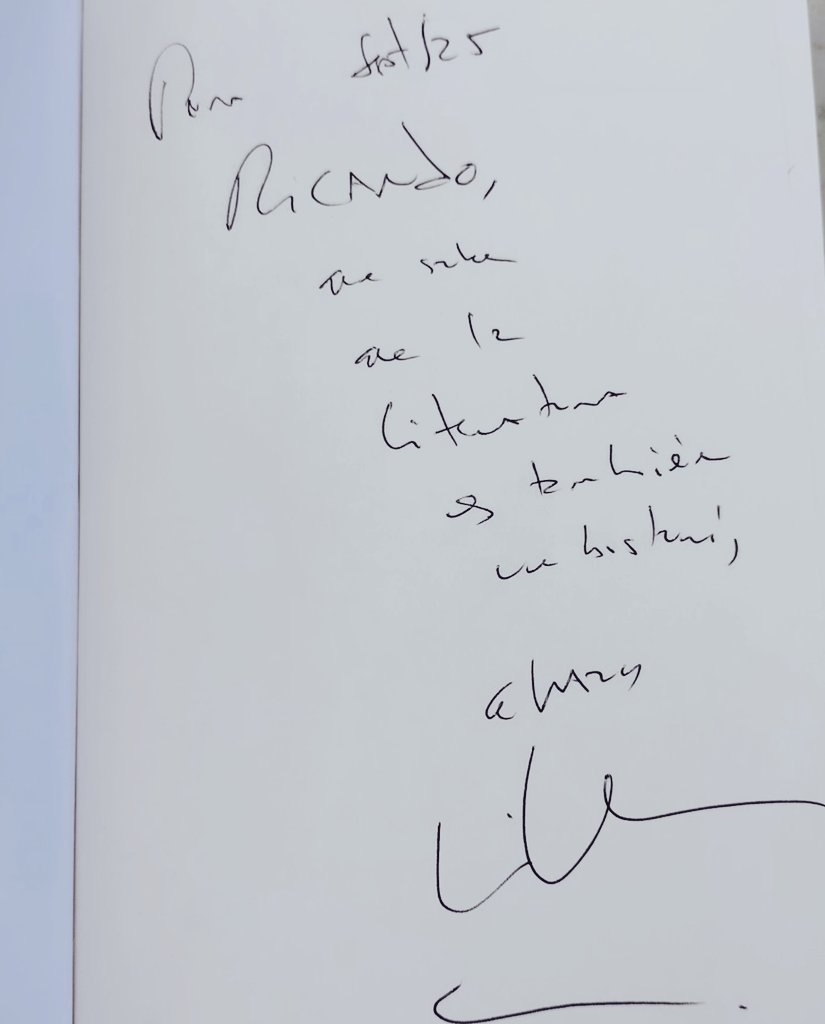 Sept/25
Para
Ricardo,
que sabe
que la
Literatura
es también
una historia,
abrazos